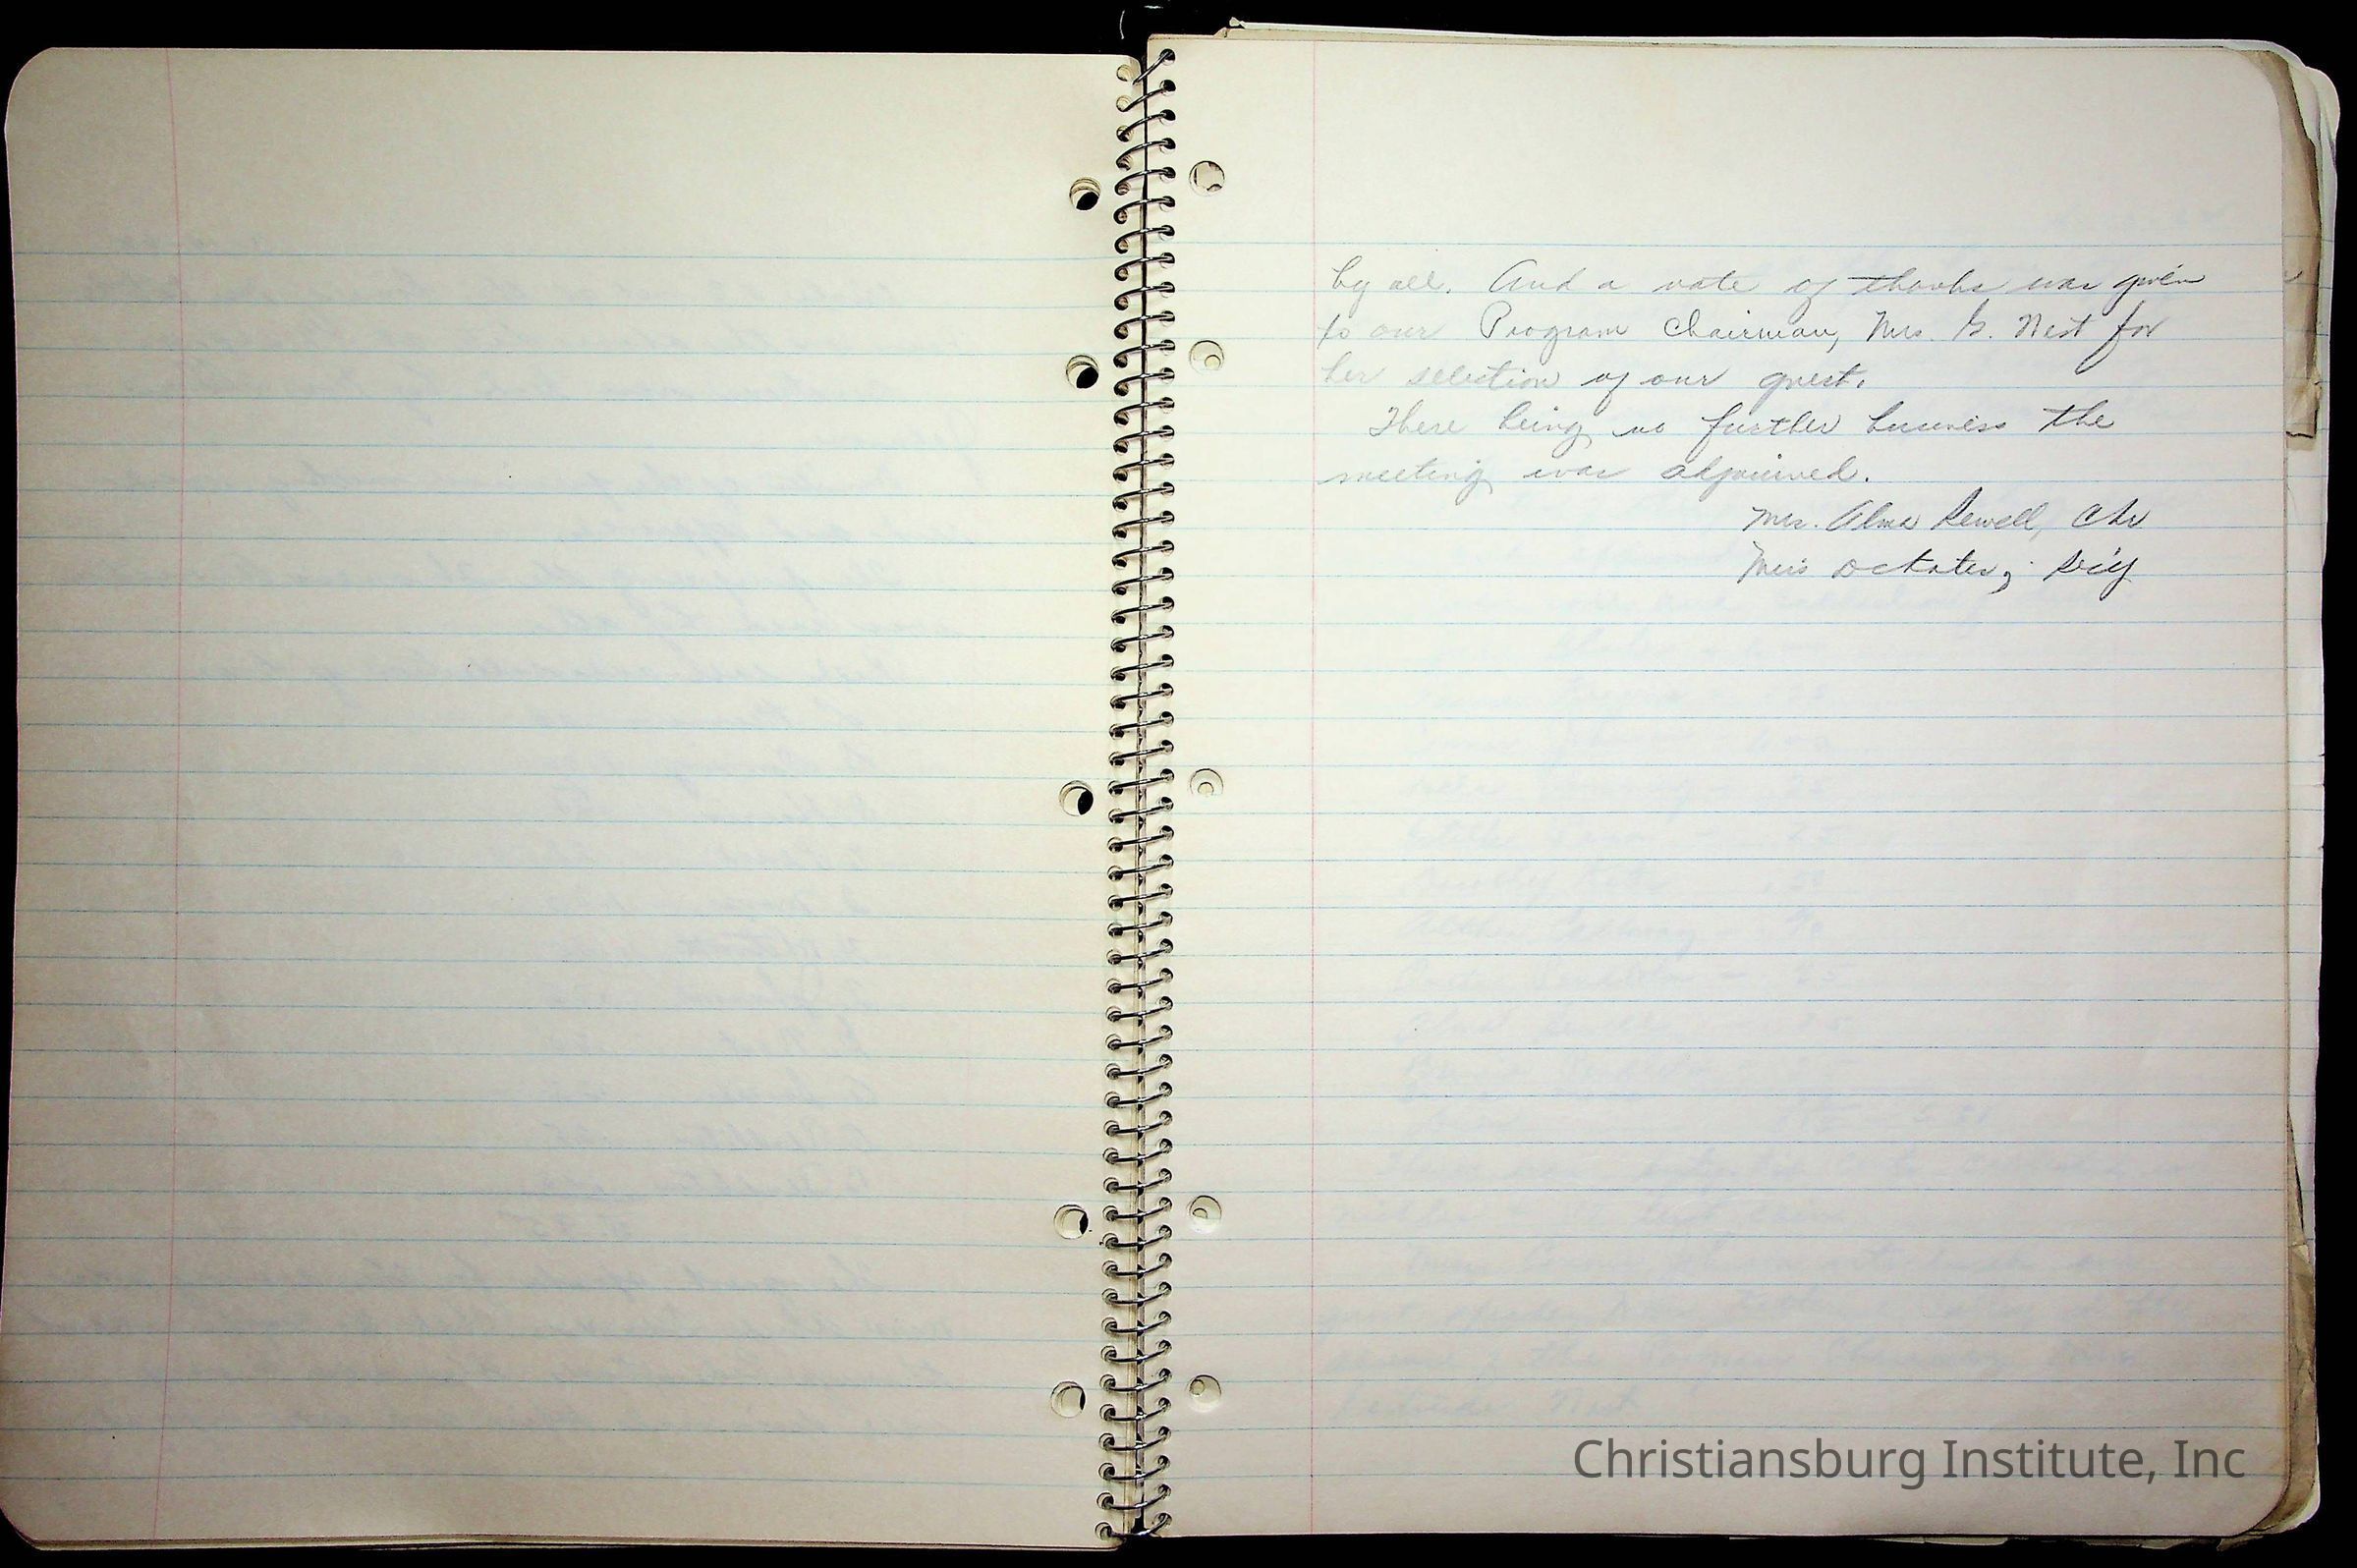 by all. And a vote of thanks was given
to our Program Chairman, Mrs. G. Nest for
her selection of our guest.
There being no further business the
meeting was adjourned.
Mrs. Alma Sewell, Chr
Christiansburg Institute, Inc